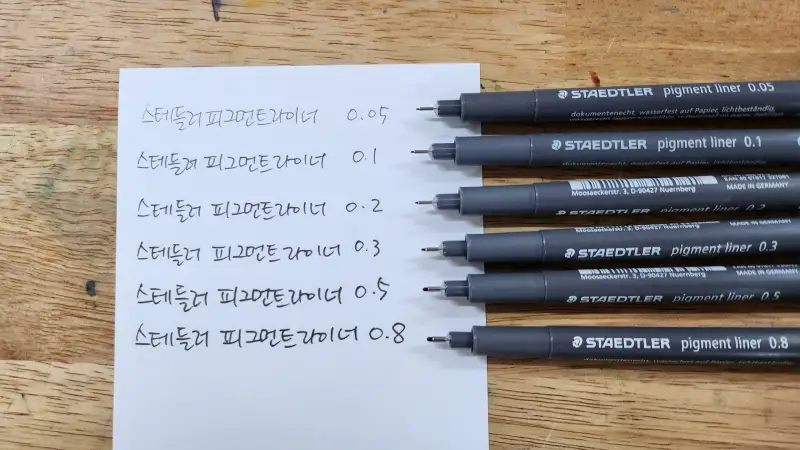 스테들러 피그먼트라이너 0.05
스테들러 피그먼트라이너 0.1
스테들러 피그먼트라이너 0.2
스테들러 피그먼트라이너 0.3
스테들러 피그먼트라이너 0.5
스테들러 피그먼트라이너 0.8
STAEDTLER pigment liner 0.05
dokumentenecht, wasserfest auf Papier, lichtbeständig,
STAEDTLER pigment liner 0.1
Moosaeckerstr. 3, D-90427 Nuernberg MADE IN GERMANY
STAEDTLER pigment liner 0.2
Moosaeckerstr. 3, D-90427 Nuernberg
STAEDTLER pigment liner 0.3
Moosaeckerstr. 3, D-90427 Nuernberg MADE IN GERMANY
STAEDTLER pigment liner 0.5
STAEDTLER pigment liner 0.8